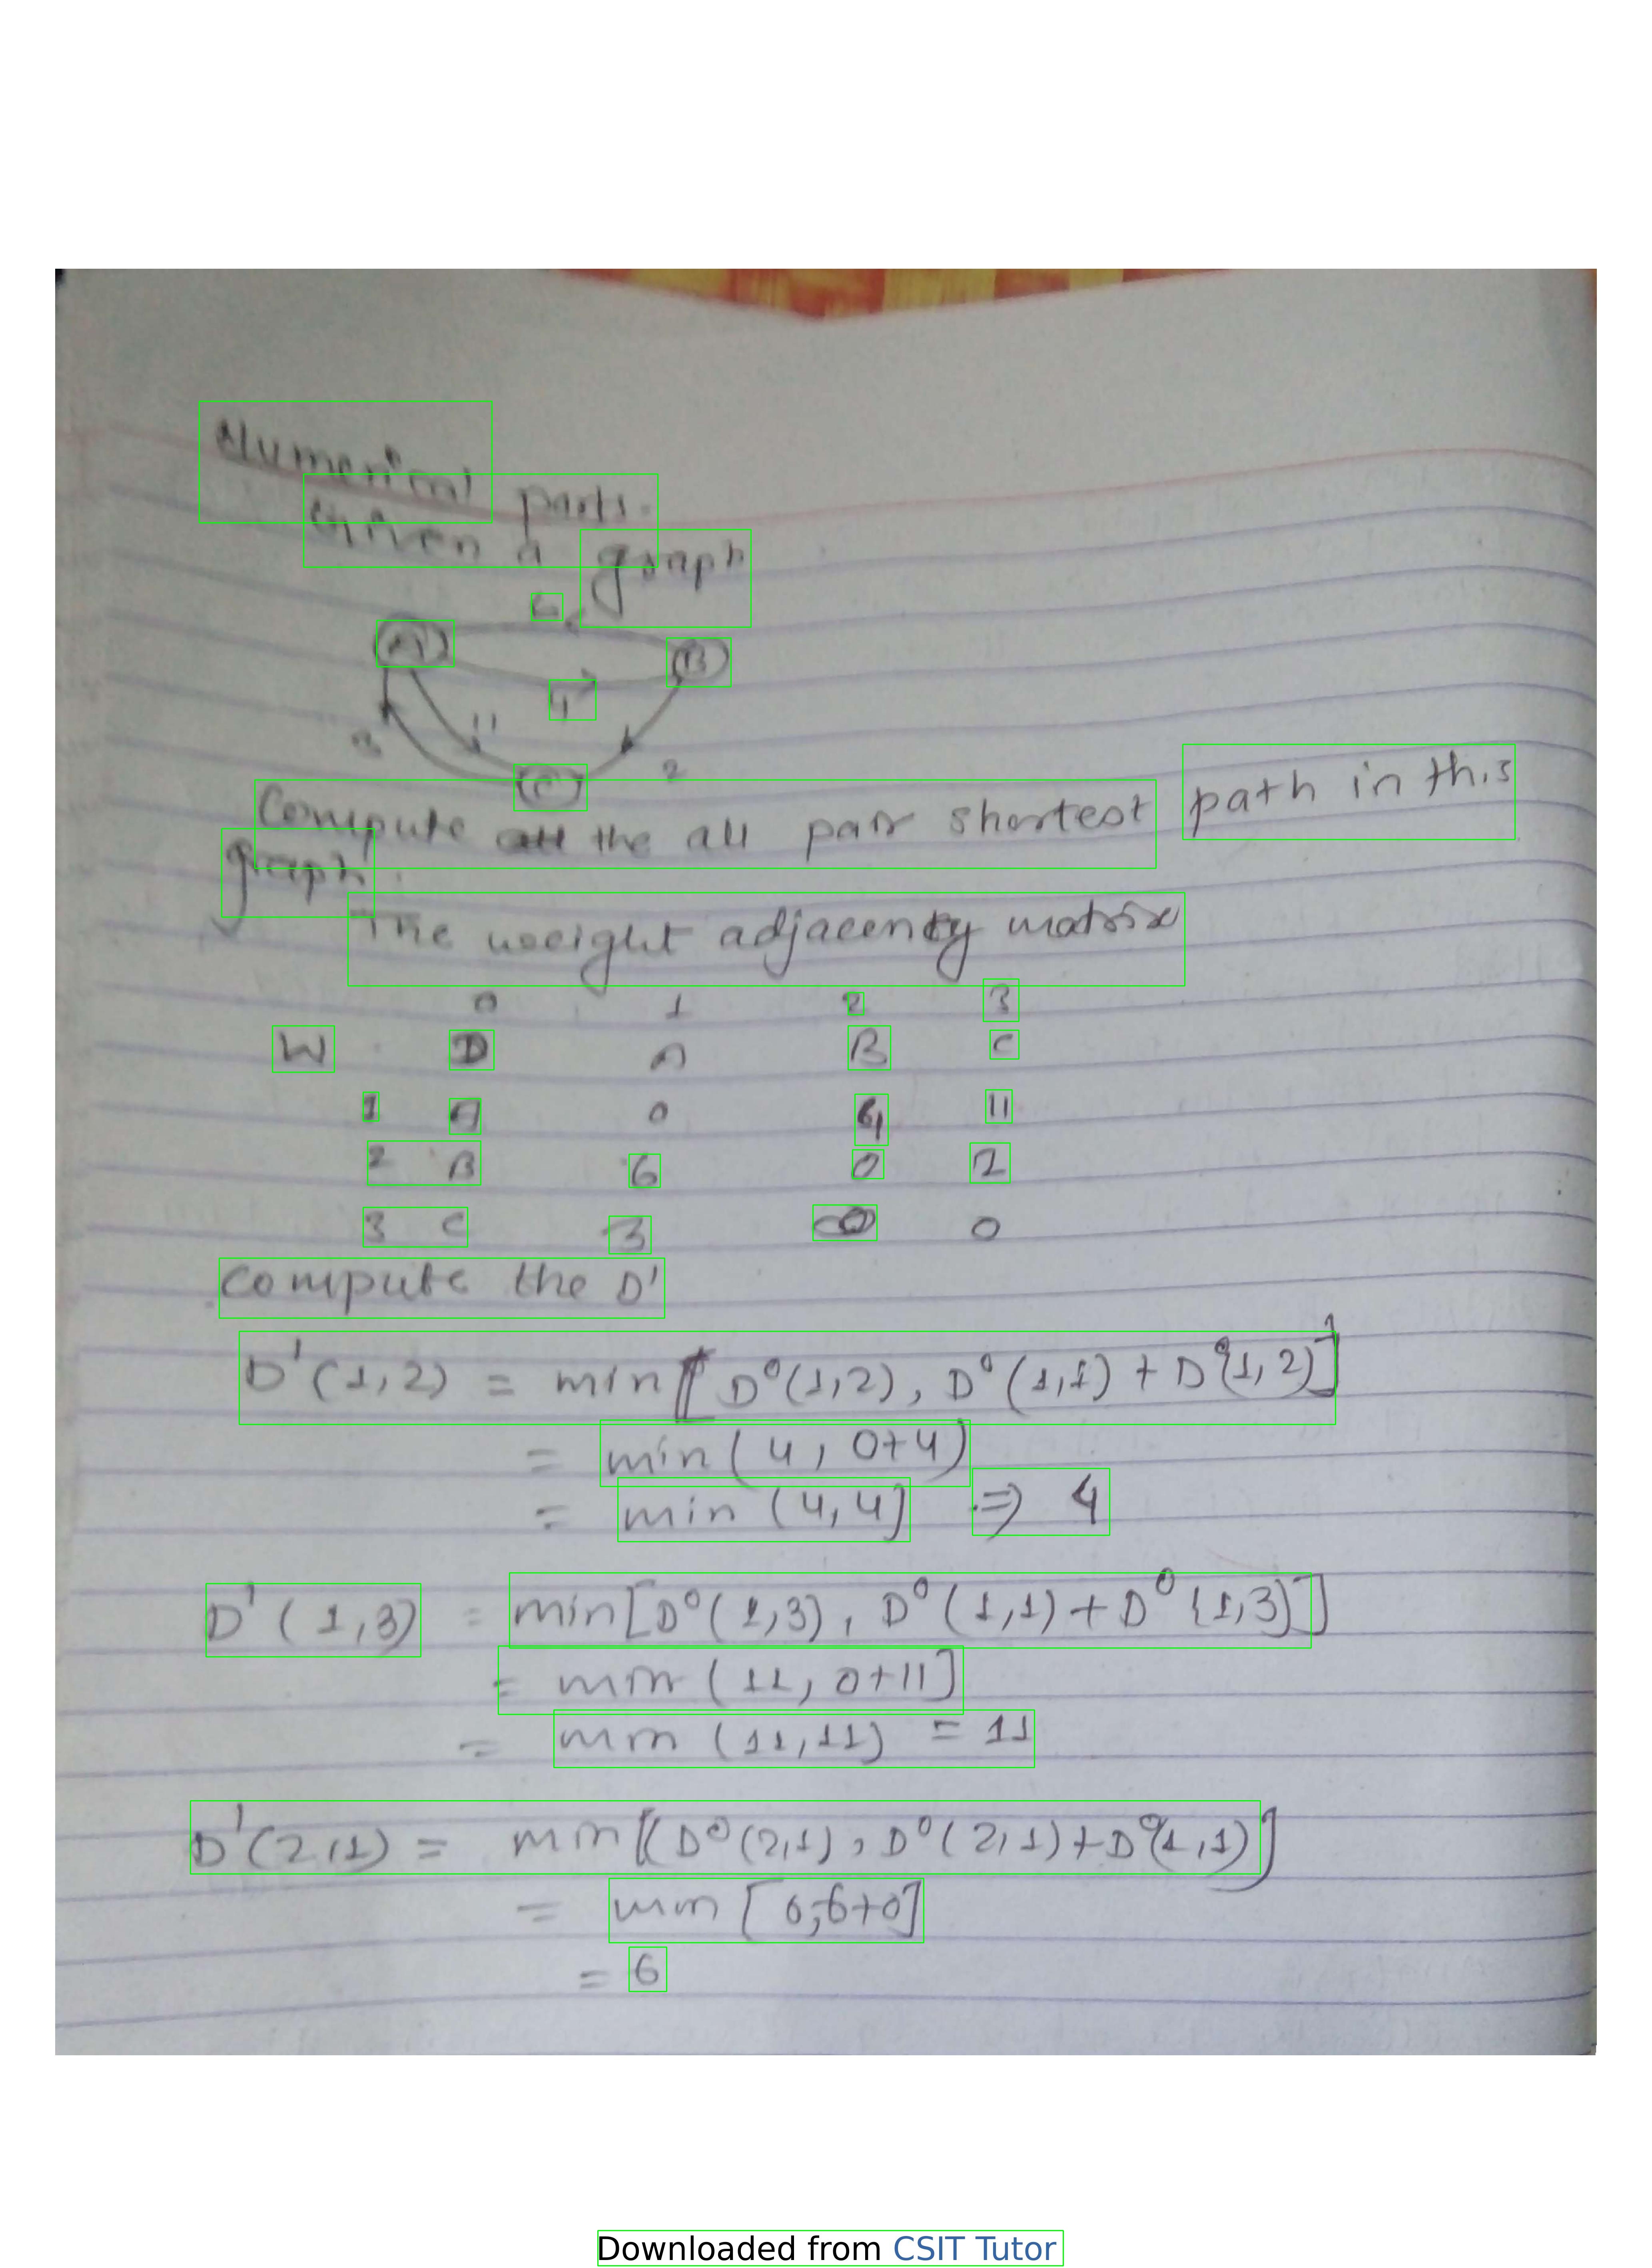 Numerical parts.
Given a graph
6
A B
4
11
3 2
C
Compute the all pair shortest path in this
graph.
The weight adjacency matrix
0 1 2 3
W D A B C
1 A 0 4 11
2 B 6 0 2
3 C 3 ∞ 0
compute the D'
D'(1,2) = min[D⁰(1,2), D⁰(1,1) + D⁰(1,2)]
= min(4, 0+4)
= min (4,4] ⇒ 4
D'(1,3) = min[D⁰(1,3), D⁰(1,1)+D⁰(1,3)]
= min (11, 0+11]
= min (11,11) = 11
D'(2,1) = min[(D⁰(2,1), D⁰(2,1)+D⁰(1,1)]
= min [6,6+0]
= 6
Downloaded from CSIT Tutor